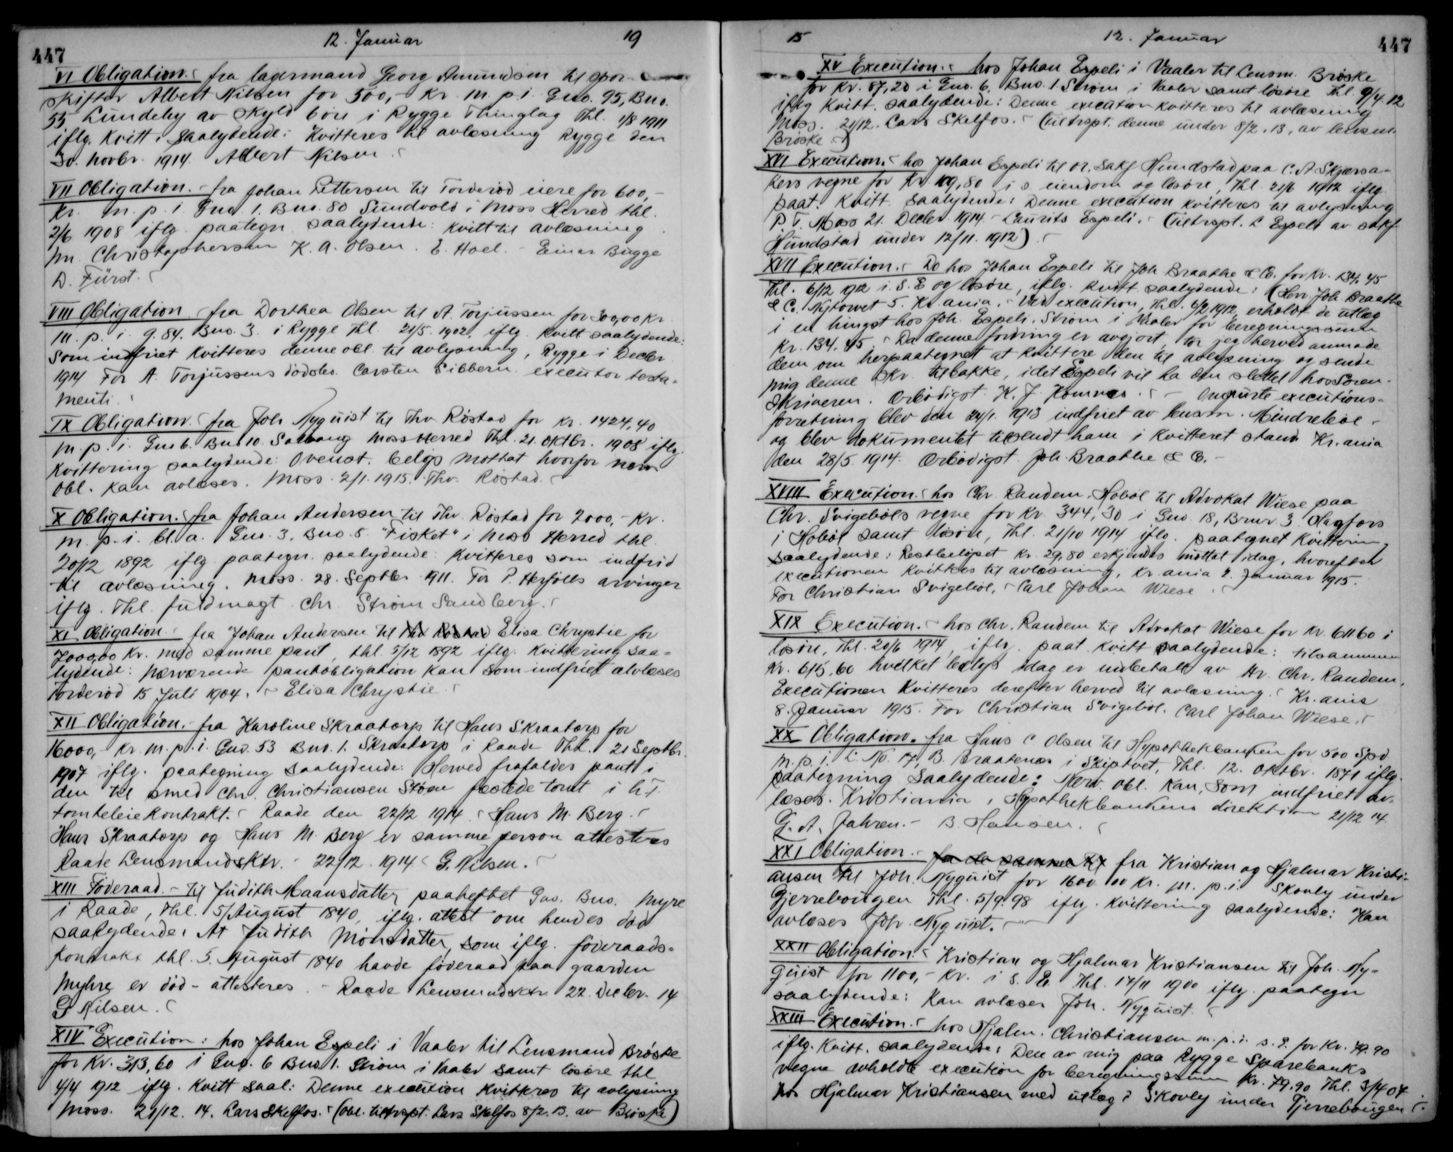 447
12. Januar 19
VI Obligation. fra lagermand Georg Amundsen til spor-
skifter Albert Nilsen for 500,- Kr. m. p. i Gno. 95, Bno.
53 Lundeby av skyld 6 øre i Rygge Thinglag Thl. 1/8 1911
iflg. Kvitt. saalydende: Kvitteres til avlæsning Rygge den
30. Novbr. 1914 Albert Nilsen
VII Obligation. fra Johan Pettersen til Torderød eiere for 600,-
Kr. m. p. i Gno 1. Bno 80 Sundvold i Moss Herred thl.
2/6 1908 iflg. paategn. saalydende: Kvitt til avlæsning.
pr Christophersen K. A. Olsen. E. Hoel. Einar Bugge
D. Fürst.
VIII Obligation fra Dorthea Olsen til A. Torjussen for 3000,00 Kr.
m. p. i g. 84. Bno. 3. i Rygge thl. 21/5 1902 iflg. Kvitt saalydende:
Som indfriet kvitteres denne obl. til avlysning, Rygge i Decbr
1914 For A. Torjussens dødsbo. Carsten Sibbern executor testa-
menti.
IX Obligation. fra Joh. Nyquist til Thv. Røstad for Kr. 1424,40
m. p. i Gno 6. Bno 10. Moss Herred Thl. 21. Oktbr. 1908 iflg.
Kvittering saalydende: Ovenst. beløp mottat hvorfor nærv
Obl. kan avlæses. Moss. 2/1. 1915. Thv. Røstad.
X Obligation. fra Johan Andersen til Thv. Røstad for 2000,- Kr.
m. p. i bl. a. Gno. 3. Bno. 5. "Fisket" i Moss Herred thl.
20/12 1892 iflg. paategn. saalydende: Kvitteres som indfrid
til avlæsning. Moss. 28. Septbr. 1911. For P. Herfolls arvinger
iflg. Thl. fuldmagt. Chr. Strøm Sandberg.
XI Obligation fra Johan Andersen til Elisa Chrystie for
7000,00 Kr. med samme pant thl. 3/12 1892 iflg. Kvittering saa-
lydende: Nærværende pantobligation kan som indfriet avlæses
Torderød 15 Juli 1904. Elisa Chrystie.
XII Obligation. fra Karoline Skraatorp til Hans Skraatorp for
16000,- Kr. m. p. i. Gno. 53 Bno. 1. Skraatorp i Raade Thl. 21 Septbr.
1907 iflg. paategning saalydende: Herved frafaldes pant i
den til smed Chr. Christiansen Støen fæstede tomt i h.t.
tomteleiekontrakt. Raade den 22/12 1914. Hans M. Berg.
Hans Skraatorp og Hans M. Berg er samme person attesteres
Raade Lensmandsktr. 22/12. 1914 G. Nilsen.
XIII Føderaad. til Judith Maansdatter, paaheftet Gno. Bno. Myre
i Raade, Thl. 5/August 1840, iflg. attest om hendes død
saalydende: At Judith Monsdatter, som iflg. føderaads-
kontrakt thl. 5. August 1840 havde føderaad paa gaarden
Myhre er død - attesteres. Raade Lensmandsktr 22. Decbr. 14
G Nilsen.
XIV Execution: hos Johan Espeli i Vaaler til Lensmand Brøske
for Kr. 313,60 i Gno. 6 Bno 1. Strøm i Vaaler samt løsøre thl
4/4 1912 iflg. Kvitt saal: Denne execution kvitteres til avlysning
Moss. 21/12. 14. Lars Skelfos. (Obl. transpt. Lars Skelfos 8/2. 13. av Brøske)
15 12. Januar
447
XV Execution. hos Johan Espeli i Vaaler til Lensm. Brøske
for Kr. 57,20 i Gno. 6. Bno. 1 Strøm i Vaaler samt løsøre thl. 9/4. 12
iflg Kvitt. saalydende: Denne execution kvitteres til avlæsning
Moss. 21/12. Lars Skelfos. (Uttrspt. denne under 8/2. 13. av lensm
Brøske)
XVI Execution. hos Johan Espeli til O.r. Sakf. Hundstad paa C. A.
kers vegne for Kr 109,80 i s. eiendom og løsøre, Thl. 21/6 1912 iflg.
paat. Kvitt. saalydende: Denne execution kvitteres til avlysning
p. t. Moss 21. Decbr 1914. Laurits Espeli. (Uttrspt. L Espeli av sakf.
Hundstad under 12/11. 1912).
XVII Execution. Do hos Johan Espeli til Joh. Braathe & Co. for Kr. 134,45
thl. 6/12 1912 i S. E og løsøre, iflg. Kvitt saalydende: (Herr Joh Braathe
& Co. Nytorvet 5. Kr.ania. Ved execution, thl. 6/12 1912, erholdt de utlæg
i en hingst hos Joh. Espeli. Strøm i Vaaler for beregningssum
Kr. 134.45. Da denne fordring er avgjort, tør jeg herved anmode
dem om herpaategnet at kvittere den til avlæsning og sende
mig denne tilbake, idet Espeli vil ha den slettet hos Soren-
skriveren. Ærbødigst K. J. Omskrevne executions-
forretning blev den 24/1. 1913 indfriet av lensm. Mindrebøe
og blev dokumentet tilsendt ham i kvitteret stand Kr.ania
den 28/5 1914. Ærbødigst Joh Braathe & Co.
XVIII Execution. hos Chr. Randem. Hobøl til Advokat Wiese paa
Chr. Svigebøls vegne for Kr. 344,30 i Gno. 18, Brnr 3 Hagfors
i Hobøl samt løsøre, Thl. 21/10 1914 iflg. paategnet kvittering
saalydende: Restbeløpet Kr. 29,80 erkjendes mottat idag, hvorefter
executionen kvitteres til avlæsning, Kr.ania 8. Januar 1915.
For Christian Svigebøl. Carl Johan Wiese.
XIX Execution. hos Chr. Randem til Advokat Wiese for Kr. 611,60 i
løsøre, thl. 20/6 1914 iflg. paat. Kvitt saalydende: tilsammen
Kr. 615,60 hvilket beløp idag er indbetalt av Hr. Chr. Randem.
Executionen kvitteres derefter herved til avlæsning. Kr.ania
8. Januar 1915. For Christian Svigebøl. Carl Johan Wiese.
XX Obligation. fra Hans C Olsen til Hypothekbanken for 500 Spd
m. p. i L. No. 17, B. Braatenes i Skiptvet, Thl. 12. Oktbr. 1871 iflg.
paategning saalydende: Nærv. Obl. kan, som indfriet av-
læses. Kristiania, Hypothekbankens direktion 21/12 14.
G. A. Jahren. B Hansen.
XXI Obligation. fra Kristian og Hjalmar Kristi-
ansen til Joh. Nyquist for 1600 00 Kr. m. p. i Skovly under
Gjerrebougen Thl. 5/9 98 iflg. Kvittering saalydende: Kan
avlæses Joh. Nyquist.
XXII Obligation. Kristian og Hjalmar Kristiansen til Joh. Ny-
quist for 1100,- Kr. i S. E Thl. 17/11 1900 iflg. paategn
saalydende: Kan avlæses Joh. Nyquist.
XXIII Execution. hos Hjalm. Christiansen m. p. i. s. g. for Kr. 79.90
iflg. Kvitt. saalydende: Den av mig paa Rygge Sparebanks
vegne avholdte execution for beregningssum Kr. 79,90 Thl. 3/4 04
hos Hjalmar Kristiansen med utlæg i Skovly under Gjerrebougen